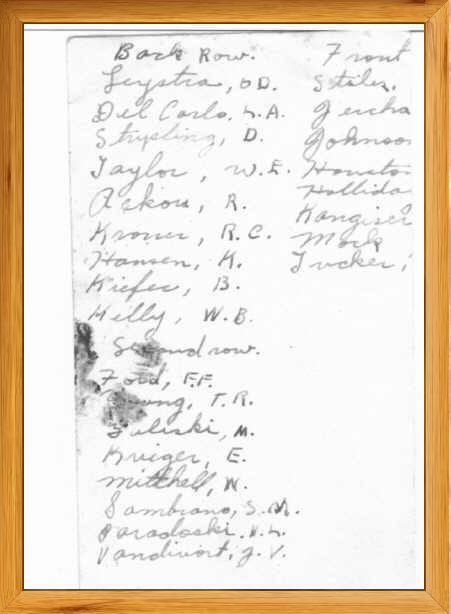 Back Row.
Leystra, O.D.
Del Carlo, L.A.
Stripling, D.
Taylor, W.E.
R.
Kroner, R.C.
Hansen, K.
Kiefer, B.
Kelly, W.B.
Second row.
Ford, F.F.
T.R.
Zuliski, M.
Kruger, E.
Mitchell, W.
Sambrano, S.M.
Paradoski, V.L.
Vandivort, J.V.
Front
Stiles,
Johnson
Houston
Hollida
Kangiser
Mock
Tucker,